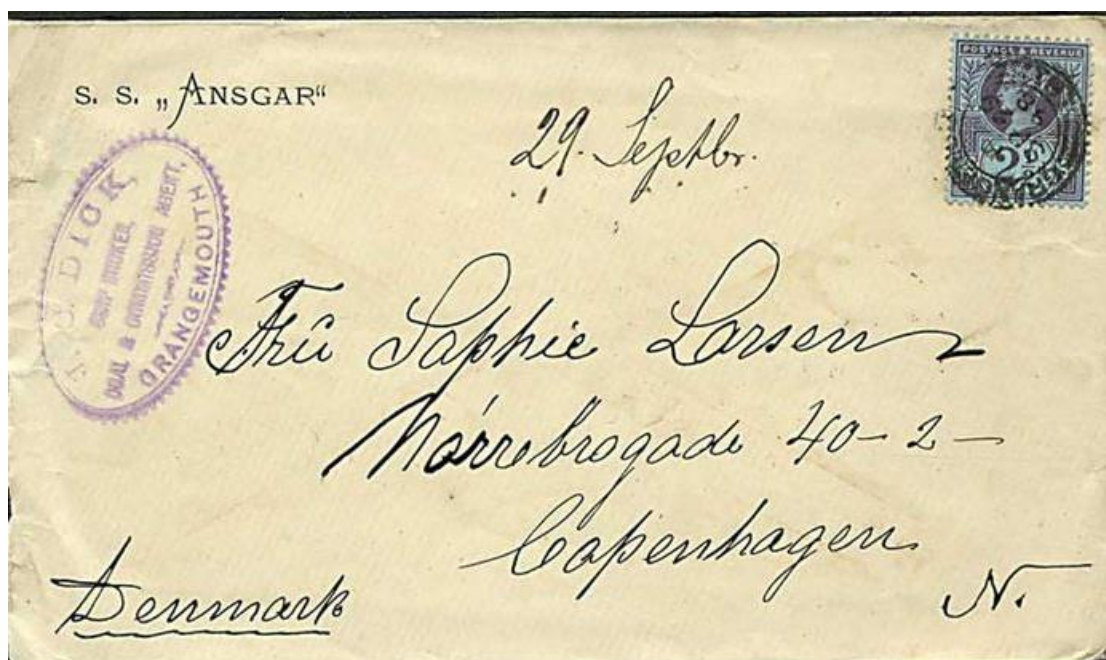 S. S. „ANSGAR“
29. Septbr.
POSTAGE & REVENUE
2½
DICK,
SHIP BROKER,
COAL & COMMISSION AGENT,
GRANGEMOUTH
Frū Saphie Larsen
Nørrebrogade 40-2-
Copenhagen
N.
Denmark